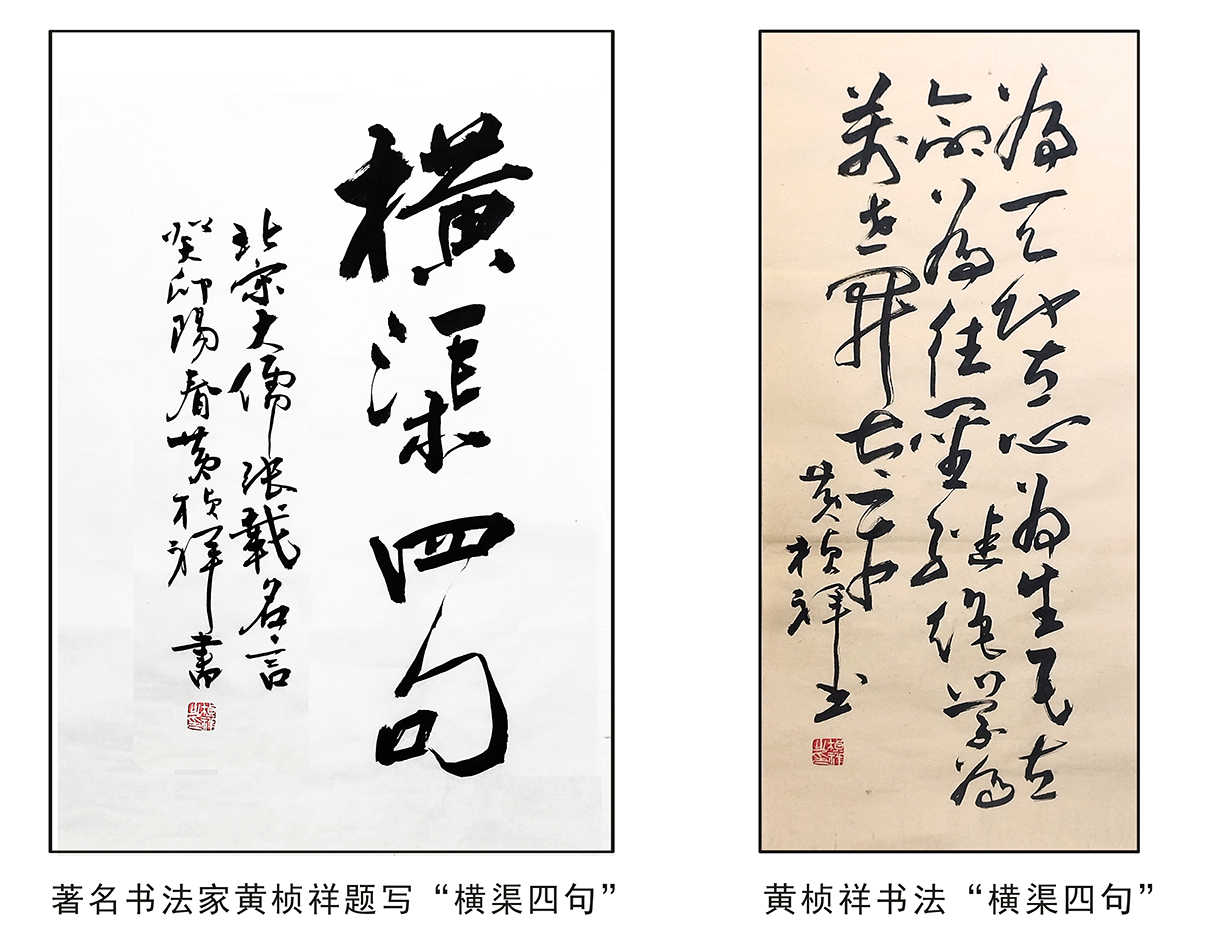 橫渠四句
北宋大儒張載名言
癸卯陽春黄桢祥書
為天地立心為生民立
命為往聖继绝学為
萬世開太平
黄桢祥书
著名书法家黄桢祥题写“横渠四句”
黄桢祥书法“横渠四句”